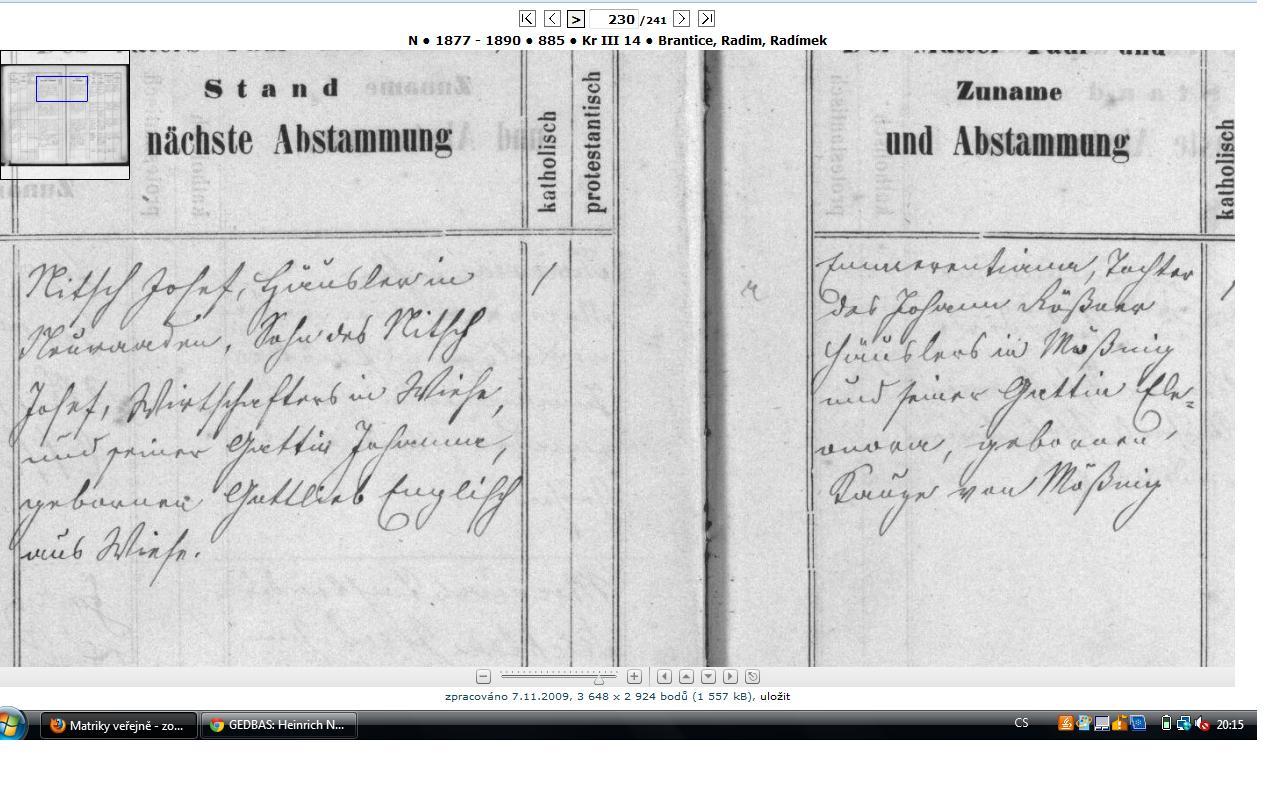 230 /241
N ● 1877 - 1890 ● 885 ● Kr III 14 ● Brantice, Radim, Radímek
Stand
nächste Abstammung
katholisch
protestantisch
Nitsch Josef, Häusler in
Sohn des Nitsch
Josef, Wirtschafters in Wiese,
und seiner Gattin Johanna,
gebornen Gottlieb Englisch
aus Wiese.
Der Mutter Tauf- und
Zuname
und Abstammung
katholisch
Emmerentiana, Tochter
des Johann Rößner
Häuslers in Mößnig
und seiner Gattin Ele=
onora, gebornen
von Mößnig
zpracováno 7.11.2009, 3 648 x 2 924 bodů (1 557 kB), uložit
Matriky veřejně - zo...
GEDBAS: Heinrich N...
CS
20:15